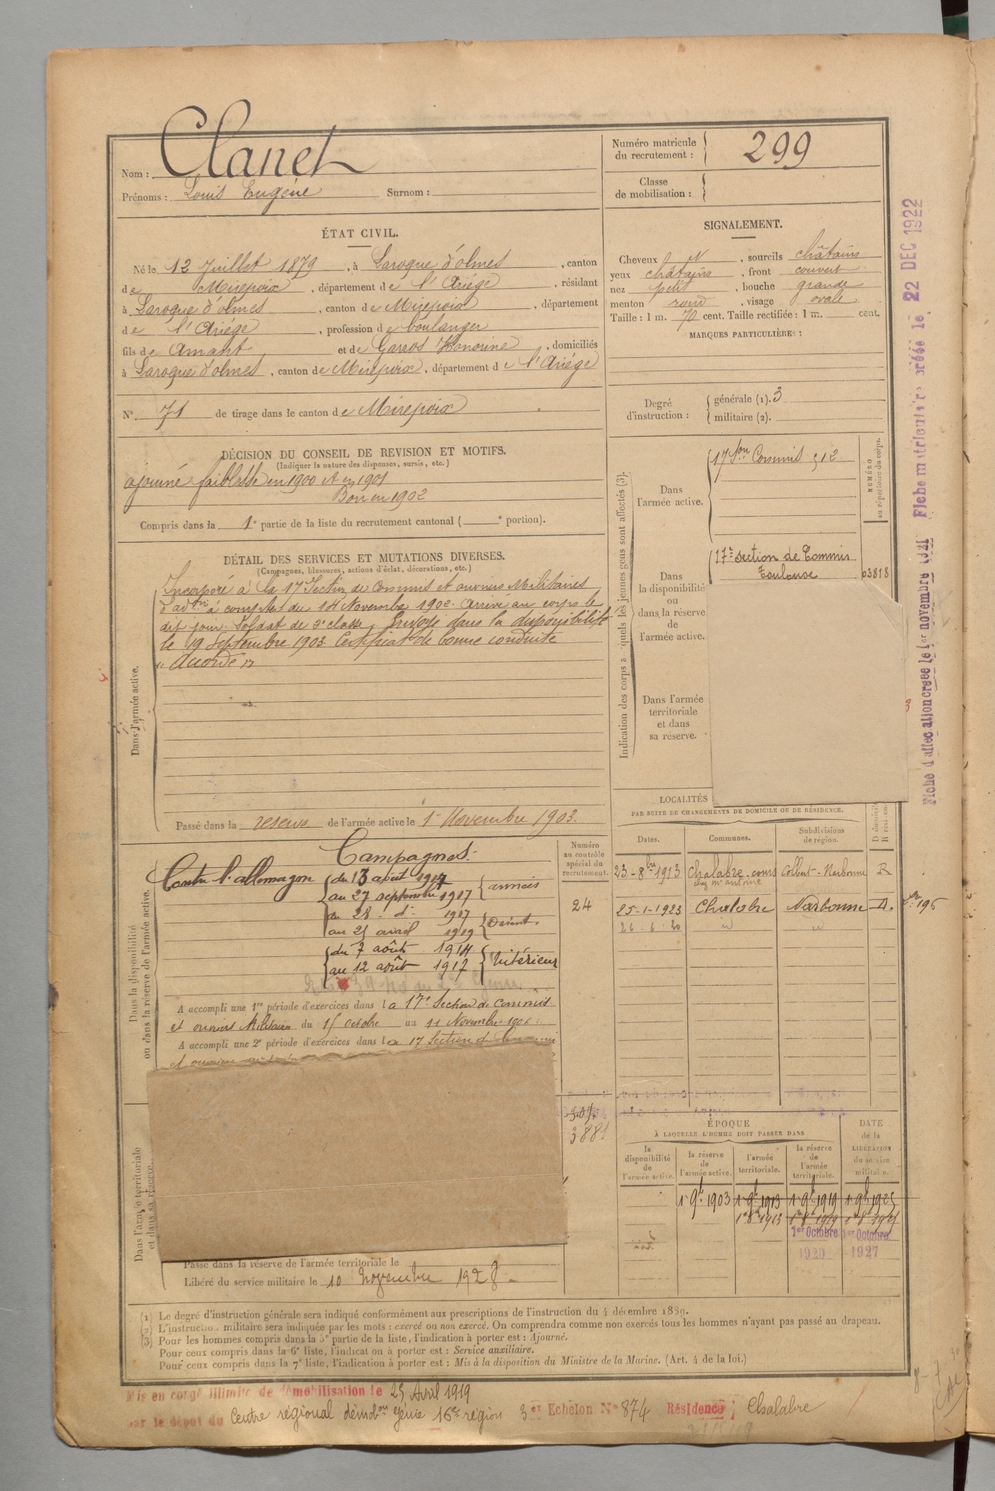 Nom : Clanet
Prénoms : Louis Eugène Surnom :
Numéro matricule
du recrutement : 299
Classe
de mobilisation :
ÉTAT CIVIL.
Né le 12 Juillet 1879, à Laroque d'olmes, canton
de Mirepoix, département de l'Ariége, résidant
à Laroque d'olmes, canton de Mirepoix, département
de l'Ariége, profession de boulanger
fils de Amant et de Garros Honorine, domiciliés
à Laroque d'olmes, canton de Mirepoix, département de l'Ariége
N° 71 de tirage dans le canton de Mirepoix
SIGNALEMENT.
Cheveux et, sourcils châtains
yeux châtains, front couvert
nez petit, bouche grande
menton rond, visage ovale
Taille : 1 m. 70 cent. Taille rectifiée : 1 m. cent.
MARQUES PARTICULIÈRES :
Degré
d'instruction :
générale (1). 3
militaire (2).
DÉCISION DU CONSEIL DE REVISION ET MOTIFS.
(Indiquer la nature des dispenses, sursis, etc.)
ajourné faiblesse en 1900 et en 1901
Bon en 1902
Compris dans la 1e partie de la liste du recrutement cantonal ( e portion).
DÉTAIL DES SERVICES ET MUTATIONS DIVERSES.
(Campagnes, blessures, actions d'éclat, décorations, etc.)
Dans l'armée active.
Incorporé à la 17e Section de Commis et ouvriers Militaires
d'adon à compter du 14 Novembre 1902. Arrivé au corps le
dit jour, Soldat de 2e classe. Envoyé dans la disponibilité
le 19 Septembre 1903 Certificat de bonne conduite
"Accordé"
Passé dans la réserve de l'armée active le 1er Novembre 1903.
Indication des corps auxquels les jeunes gens sont affectés (3).
NUMÉRO
au répertoire du corps.
Dans
l'armée active.
17e Son Commis 512
Dans
la disponibilité
ou
dans la réserve
de
l'armée active.
17e section de Commis
Toulouse 03818
Dans l'armée
territoriale
et dans
sa réserve.
LOCALITÉS
PAR SUITE DE CHANGEMENTS DE DOMICILE OU DE RÉSIDENCE.
Dates. Communes. Subdivisions
de région.
23-8bre 1913 Chalabre cours Narbonne R
25-1-1923 Chalabre Narbonne D.
26-6-20 id id
Numéro
au contrôle
spécial du
recrutement.
24
Dans la disponibilité
ou dans la réserve de l'armée active.
Campagnes.
Contre l'allemagne
du 13 août 1917
au 27 septembre 1917 armées
du 28 d° 1917
au 25 avril 1919 Orient.
du 7 août 1914
au 12 août 1917 Intérieur
A accompli une 1re période d'exercices dans la 17e Section de Commis
et ouvriers Militaires du 15 octobre au 11 Novembre 1906.
A accompli une 2e période d'exercices dans la 17 Section de Commis
Dans l'armée territoriale
et dans sa réserve.
Passé dans la réserve de l'armée territoriale le
Libéré du service militaire le 10 novembre 1928.
ÉPOQUE
À LAQUELLE L'HOMME DOIT PASSER DANS
la
disponibilité
de
l'armée active.
la réserve
de
l'armée active.
l'armée
territoriale.
la réserve
de
l'armée
territoriale.
DATE
de la
LIBÉRATION
du service
militaire.
1er 9bre 1903 1er 9bre 1913 1er 9bre 1919 1er 9bre 1925
1er 8bre 1913
1er Octobre 1er Octobre
1920 1927
(1) Le degré d'instruction générale sera indiqué conformément aux prescriptions de l'instruction du 4 décembre 1889.
(2) L'instruction militaire sera indiquée par les mots : exercé ou non exercé. On comprendra comme non exercés tous les hommes n'ayant pas passé au drapeau.
(3) Pour les hommes compris dans la 5e partie de la liste, l'indication à porter est : Ajourné.
Pour ceux compris dans la 6e liste, l'indication à porter est : Service auxiliaire.
Pour ceux compris dans la 7e liste, l'indication à porter est : Mis à la disposition du Ministre de la Marine. (Art. 4 de la loi.)
Mis en congé illimité de démobilisation le 25 Avril 1919
par le dépot du Centre régional démobon génie 16e région 3e Echelon N° 874 Résidence Chalabre
Fiche d'affectation créée le 1er novembre 1921 Fiche matriculaire créée le 22 DEC 1922